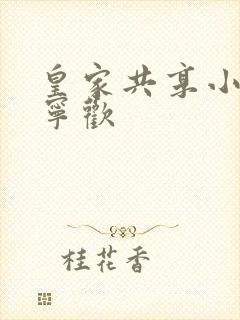 皇家共享小
寧歡
桂花香